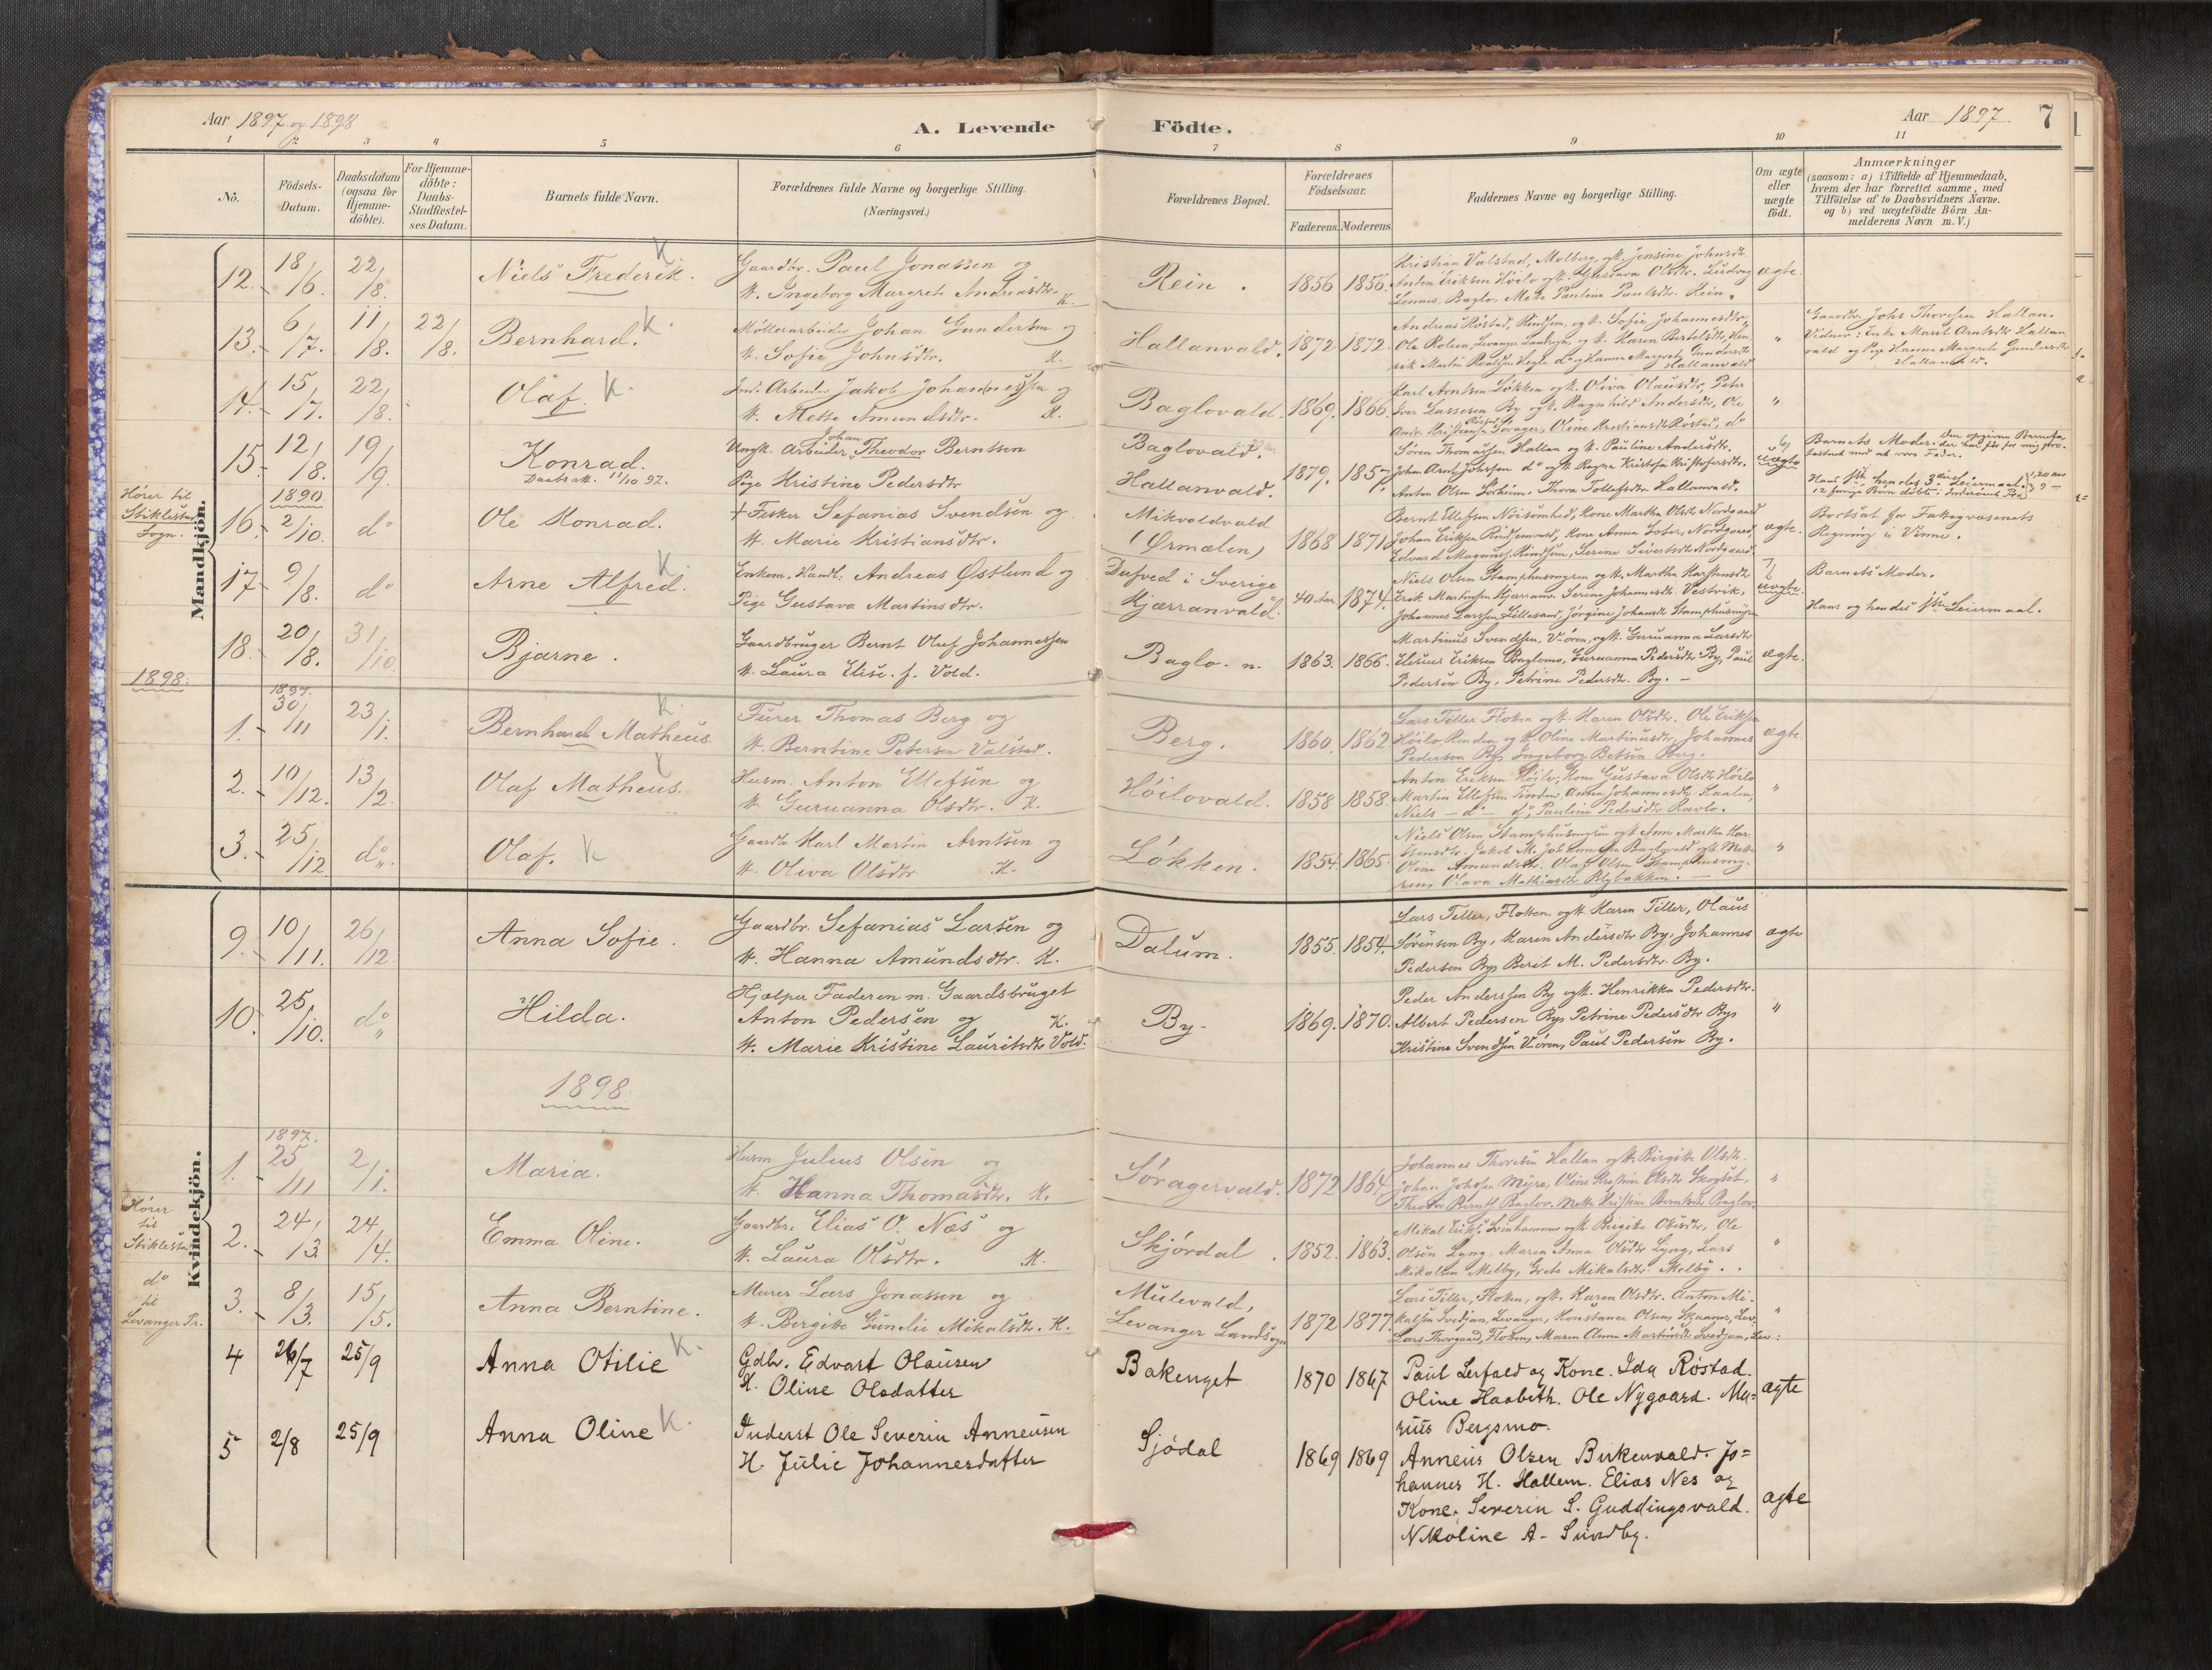 Aar 1897 og 1898
A. Levende Födte.
Aar 1897. 7
1 2 3 4 5 6 7 8 9 10 11
No.
Födsels-Datum.
Daabsdatum (ogsaa for Hjemme-döbte).
For Hjemme-döbte: Daabs-Stadfæstel-ses Datum.
Barnets fulde Navn.
Forældrenes fulde Navne og borgerlige Stilling.
(Næringsvei.)
Forældrenes Bopæl.
Forældrenes Födselsaar.
Faderens. Moderens.
Faddernes Navne og borgerlige Stilling.
Om ægte eller uægte födt.
Anmærkninger
(saasom: a) i Tilfælde af Hjemmedaab,
hvem der har forrettet samme, med
Tilföielse af to Daabsvidners Navne,
og b) ved uægtefödte Börn An-
melderens Navn m. V.)
Mandkjön.
12. 18/6. 22/8. Niels Frederik. K
Gaardbr. Paul Jonassen og
K. Ingeborg Margrete Andreasdtr. K.
Rein. 1856 1856.
Kristian Valstad, Molberg, og K. Jensine Johnsdtr.
Anton Eriksen Höilo og K. Gustava Olsdtr. Ludvig
Baglo. Mette Pauline Paulsdtr. Rein.
ægte.
13. 6/7. 11/8. 22/8. Bernhard. K.
Möllerarbeider Johan Gundersen og
K. Sofie Johnsdtr. K.
Hallanvald. 1872 1872.
Andreas Röstad, Rindsem, og K. Sofie Johannesdtr,
"
Gaardbr. Johs Thoresen Hallan.
Vidner: Enke Marit Arntsdtr Hallan
vald og Pige Hanna Margrete Gundersdtr
Hallanvald.
14. 15/7. 22/8. Olaf. K.
Ind. Arbeider Jakob Johannessen og
K. Mette Amundsdtr. K.
Baglovald. 1869. 1866.
Karl Arntsen Lökken og K. Oliva Olausdtr, Peter
Iver Lassesen By og K. Ragnhild Andersdtr, Ole
"
15. 12/8. 19/9. Konrad.
Daabsatt. 11/10 97.
Ungk. Arbeider Johan Theodor Berntsen
Pige Kristine Pedersdtr
Baglovald.
Hallanvald.
1879. 1857.
Sören Thomassen Hallan og K. Pauline Andersdtr.
Johan Arnt Johnsen do og K. Ragna Kristofa Kristofersdtr.
Anton Olsen Solheim, Thora Tollefsdtr. Hallanvald.
uægte
Barnets Moder.
Hører til
Stiklestad
Sogn.
16. 1890 2/10. do Ole Konrad.
+ Fisker Sefanias Svendsen og
K. Marie Kristiansdtr.
Mikvoldvald
(Ørmælen)
1868 1871
Bernt Ellefsen Nöisomhed, Kone Martha Olsdtr Nordgaard
Johan Eriksen Rindsemvald, Kone Anna Nordgaard,
Edvard Magnus. Rindsem, Serine Sivertsdtr Nordgaard.
ægte.
Bortsat for Fattigvæsenets
Regning i Vinne.
17. 9/8. do Arne Alfred. K
Enkem. Handl. Andreas Østlund og
Pige Gustava Martinsdtr.
Dufved i Sverige
Kjærranvald.
40 Aar. 1874.
Niels Olsen Stamphusmyren og K. Martha Karstensdtr
Erik Martinsen Kjærran. Serine Johannesdtr. Vestvik,
Johannes Larssen Lillesand, Jørgine Johansdtr Stamphusmyren
uægte.
Barnets Moder.
Hans og hendes 1ste Leiermaal.
18. 20/8. 31/10. Bjarne.
Gaardbruger Bernt Oluf Johannessen
K. Laura Elise. f. Vold.
Baglo. n. 1863. 1866.
Martinus Svendsen, Vören, og K. Guruanna Larsdtr
Elesius Eriksen Baglomo, Guruanna Pedersdtr By, Paul
Pedersen By, Petrine Pedersdtr. By. –
ægte.
1898.
1. 1897. 30/11 23/1. Bernhard Matheus. K.
Furer Thomas Berg og
K. Berntine Petersen Valstad.
Berg. 1860. 1862
Lars Tiller Floten og K. Karen Olsdtr. Ole Eriksen
Höilo, Rinden, og K. Oline Martinusdtr, Johannes
Pedersen By, Ingeborg Betsin Berg.
ægte
2. 10/12. 13/2. Olaf Matheus.
Husm. Anton Ellefsen og
K. Guruanna Olsdtr. K.
Höilovald. 1858 1858.
Anton Eriksen Höilo, Kone Gustava Olsdtr Höilo
Martin Ellefsen Tinden, Anna Johannesdtr Kaalen,
Niels – do – do, Pauline Pedersdtr Ravlo.
"
3. 25/12 do. Olaf. K
Gaardb Karl Martin Arntsen og
K. Oliva Olsdtr K.
Lökken. 1854. 1865.
Niels Olsen Stamphusmyren og K Ane Martha Kar
stensdtr. Jakob M. Johannessen Baglovald og K Mette
Oline Amundsdtr. Olaf Olsen Stamphusmy-
ren, Olava Mathiasdtr Blybakken. –
"
Kvindekjön.
9. 10/11. 26/12 Anna Sofie.
Gaardbr. Sefanias Larsen og
K. Hanna Amundsdtr. K.
Dalum. 1855. 1854.
Lars Tiller, Floten, og K. Karen Tiller, Olaus
Sörensen By, Karen Andersdtr By, Johannes
Pedersen By, Berit M. Pedersdtr. By.
ægte
10. 25/10. do Hilda.
Hjælper Faderen m. Gaardsbruget
Anton Pedersen og K.
K. Marie Kristine Lauritsdtr Vold.
By- 1869. 1870.
Peder Anderssen By og K. Henrikka Pedersdtr.
Albert Pedersen By, Petrine Pedersdtr By,
Kristine Svendsen Vören, Paul Pedersen By.
"
1898
1. 1897. 25/11 2/1. Maria.
Husm. Julius Olsen og
K. Hanna Thomasdtr. K.
Söragervald. 1872 1864
Johannes Thoresen Hallan og K. Birgitte Olsdtr.
"
Hører
til
Stiklestad
2. 24/3 24/4. Emma Oline.
Gaardbr. Elias O. Næs og
K. Laura Olsdtr. K.
Skjördal. 1852. 1863.
Olsen Lyng, Maren Anna Olsdtr Lyng, Lars
Mikalsen Melby, Grete Mikalsdtr. Melby.
"
do
til
Levanger Pr.
3. 8/3. 15/5. Anna Berntine.
Murer Lars Jonassen og
K. Bergitte Gunelie Mikalsdtr. K.
Mulevald,
Levanger Landsogn
1872 1877.
Lars Tiller, Floten, og K. Karen Olsdtr. Anton Mi-
kalsen Svedjan, Levanger, Konstance Olsen, Skaanes, Lev:
Lars Thorgaard, Floten, Maren Anna Martinsdtr Svedjan, Lev:
"
4 26/7 25/9 Anna Otilie K.
Gdb. Edvart Olausen
H. Oline Olsdatter
Bakenget 1870 1867
Paul Lerfald og Kone. Ida Röstad.
Oline Haabeth. Ole Nygaard. Ma-
rius Bergsmo.
ægte
5 2/8 25/9 Anna Oline K.
Inderst Ole Severin Anneusen
H. Julie Johannesdatter
Sjödal 1869 1869
Anneus Olsen Birkenvald. Jo=
hannes H. Hallem. Elias Nes og
Kone. Severin S. Guddingsvald.
Nikoline A- Sundby.
ægte